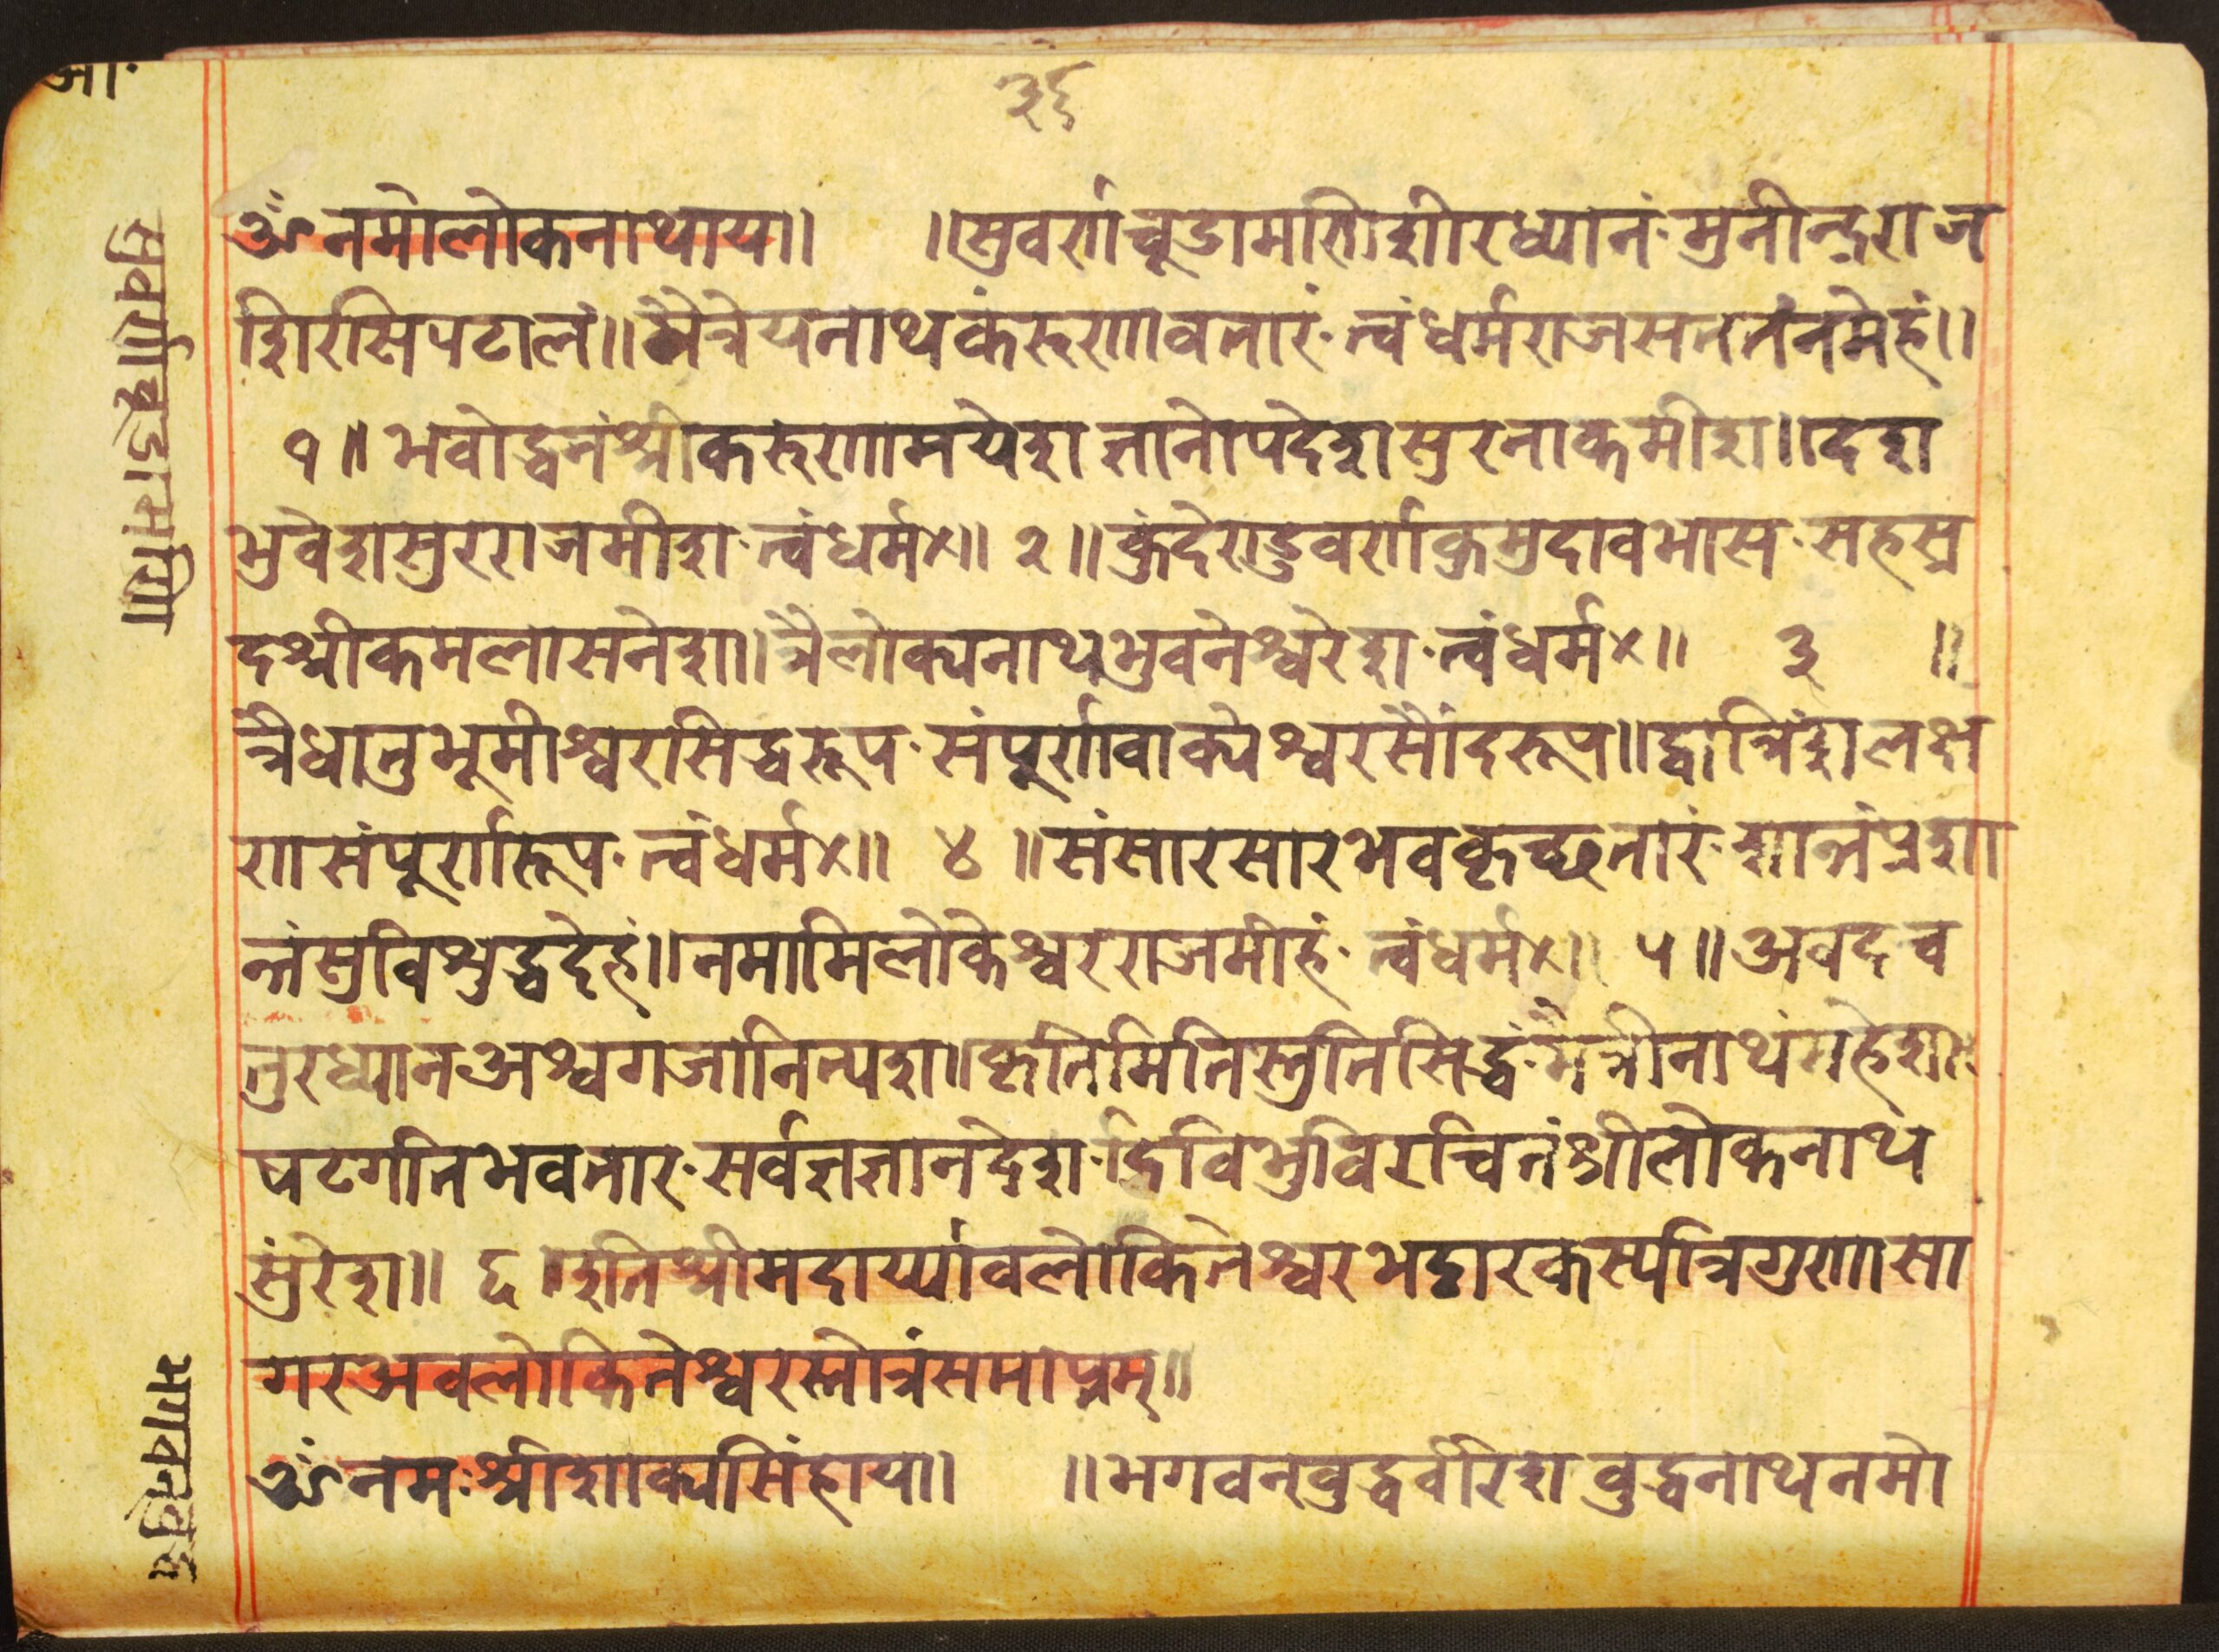 ३६
ॐ नमो लोकनाथाय॥ ॥सुवर्णचूडामणिशीरध्यानं·मुनीन्द्रराज
शिरसि पटालं॥ मैत्रेयनाथकंरुणावतारं·त्वं धर्मराज सततं नमेहं॥
१॥ भवोद्भवनं श्रीकरुणामयेश ज्ञानोपदेश सुरनाकमीश॥ दश
भुवेश सुरराजमीश·त्वं धर्म×॥ २॥ कुंदेरोडुवर्णकुमुदावभास·सहस्र
दश्रीकमलासनेश॥ त्रैलोक्यनाथभुवनेश्वरेश·त्वं धर्म×॥ ३ ॥
त्रैधातुभूमीश्वरसिद्धरूप·संपूर्णवाक्येश्वरसौंदरूप॥ द्वात्रिंशलक्ष
णसंपूर्णरूप·त्वं धर्म×॥ ४ ॥ संसारसारभवकृच्छतारं·शान्तं प्रशा
न्तं सुविशुद्धदेहं॥ नमामि लोकेश्वरराजमीहं·त्वं धर्म×॥ ५॥ अवदच
तुरध्यानअश्वगजानित्यश॥ कृतिमितिस्तुतिसिद्धं·मैत्रीनाथं महेश॥
षटगतिभवतार·सर्वज्ञज्ञानदेश·दिविभुविरचितं श्रीलोकनाथ
सुंरेश॥ ६ ॥इति श्रीमदार्य्यावलोकितेश्वरभट्टारकस्य त्रिगुणसा
गरअवलोकितेश्वरस्तोत्रं समाप्तम्॥
ॐ नमः श्रीशाक्यसिंहाय॥ ॥भगवन्बुद्धर्वरिश बुद्धनाथनमो
सुवर्णचूडामणि
भगवन्बुद्ध